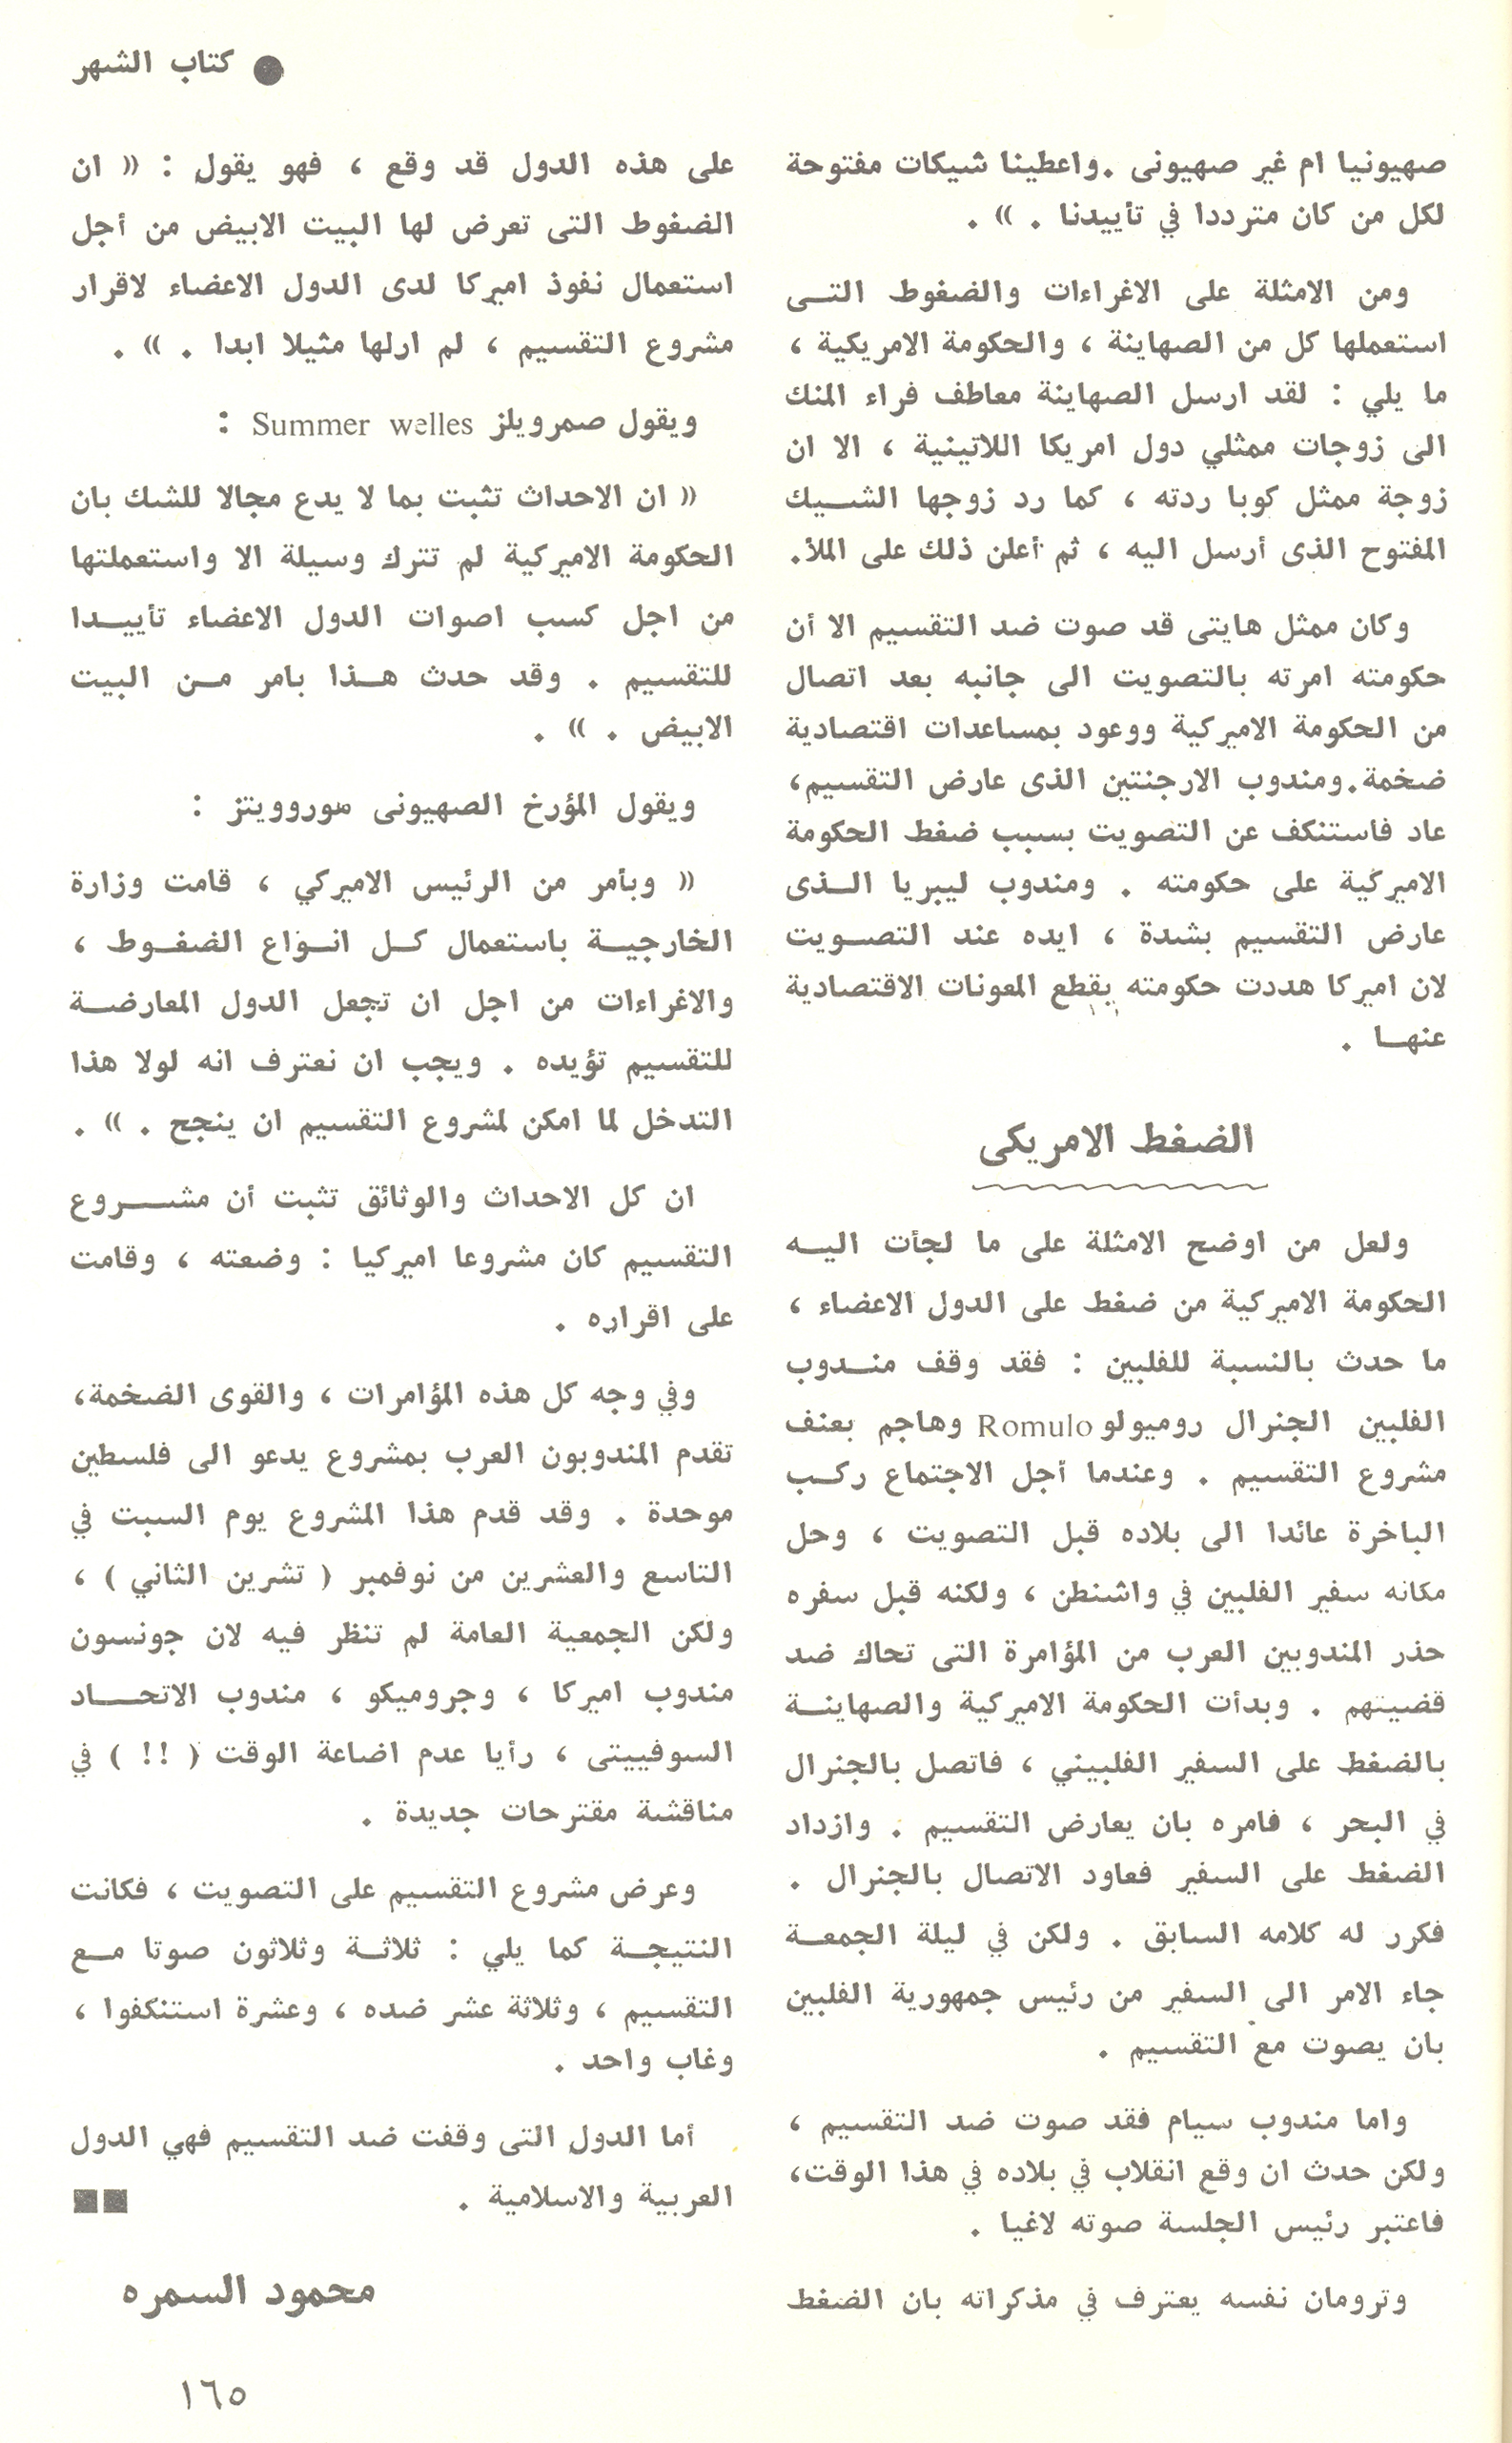 ● كتاب الشهر
صهيونيا ام غير صهيونى . واعطينا شيكات مفتوحة
لكل من كان مترددا في تأييدنا . » .
ومن الامثلة على الاغراءات والضغوط التى
استعملها كل من الصهاينة ، والحكومة الامريكية ،
ما يلي : لقد ارسل الصهاينة معاطف فراء المنك
الى زوجات ممثلي دول امريكا اللاتينية ، الا ان
زوجة ممثل كوبا ردته ، كما رد زوجها الشيك
المفتوح الذى أرسل اليه ، ثم أعلن ذلك على الملأ .
وكان ممثل هايتى قد صوت ضد التقسيم الا أن
حكومته امرته بالتصويت الى جانبه بعد اتصال
من الحكومة الاميركية ووعود بمساعدات اقتصادية
ضخمة . ومندوب الارجنتين الذى عارض التقسيم ،
عاد فاستنكف عن التصويت بسبب ضغط الحكومة
الاميركية على حكومته . ومندوب ليبريا الذى
عارض التقسيم بشدة ، ايده عند التصويت
لان اميركا هددت حكومته بقطع المعونات الاقتصادية
عنها .
الضغط الامريكى
ولعل من اوضح الامثلة على ما لجأت اليه
الحكومة الاميركية من ضغط على الدول الاعضاء ،
ما حدث بالنسبة للفلبين : فقد وقف مندوب
الفلبين الجنرال روميولو Romulo وهاجم بعنف
مشروع التقسيم . وعندما أجل الاجتماع ركب
الباخرة عائدا الى بلاده قبل التصويت ، وحل
مكانه سفير الفلبين في واشنطن ، ولكنه قبل سفره
حذر المندوبين العرب من المؤامرة التى تحاك ضد
قضيتهم . وبدأت الحكومة الاميركية والصهاينة
بالضغط على السفير الفلبيني ، فاتصل بالجنرال
في البحر ، فامره بان يعارض التقسيم . وازداد
الضغط على السفير فعاود الاتصال بالجنرال .
فكرر له كلامه السابق . ولكن في ليلة الجمعة
جاء الامر الى السفير من رئيس جمهورية الفلبين
بان يصوت مع التقسيم .
واما مندوب سيام فقد صوت ضد التقسيم ،
ولكن حدث ان وقع انقلاب في بلاده في هذا الوقت ،
فاعتبر رئيس الجلسة صوته لاغيا .
وترومان نفسه يعترف في مذكراته بان الضغط
على هذه الدول قد وقع ، فهو يقول : « ان
الضغوط التى تعرض لها البيت الابيض من أجل
استعمال نفوذ اميركا لدى الدول الاعضاء لاقرار
مشروع التقسيم ، لم ارلها مثيلا ابدا . » .
ويقول صمرويلز Summer welles :
« ان الاحداث تثبت بما لا يدع مجالا للشك بان
الحكومة الاميركية لم تترك وسيلة الا واستعملتها
من اجل كسب اصوات الدول الاعضاء تأييدا
للتقسيم . وقد حدث هذا بامر من البيت
الابيض . » .
ويقول المؤرخ الصهيونى هوروويتز :
« وبأمر من الرئيس الاميركي ، قامت وزارة
الخارجية باستعمال كل انواع الضغوط ،
والاغراءات من اجل ان تجعل الدول المعارضة
للتقسيم تؤيده . ويجب ان نعترف انه لولا هذا
التدخل لما امكن لمشروع التقسيم ان ينجح . » .
ان كل الاحداث والوثائق تثبت أن مشروع
التقسيم كان مشروعا اميركيا : وضعته ، وقامت
على اقراره .
وفي وجه كل هذه المؤامرات ، والقوى الضخمة ،
تقدم المندوبون العرب بمشروع يدعو الى فلسطين
موحدة . وقد قدم هذا المشروع يوم السبت في
التاسع والعشرين من نوفمبر ( تشرين الثاني ) ،
ولكن الجمعية العامة لم تنظر فيه لان جونسون
مندوب اميركا ، وجروميكو ، مندوب الاتحاد
السوفييتى ، رأيا عدم اضاعة الوقت ( !! ) في
مناقشة مقترحات جديدة .
وعرض مشروع التقسيم على التصويت ، فكانت
النتيجة كما يلي : ثلاثة وثلاثون صوتا مع
التقسيم ، وثلاثة عشر ضده ، وعشرة استنكفوا ،
وغاب واحد .
أما الدول التى وقفت ضد التقسيم فهي الدول
العربية والاسلامية . ■■
محمود السمره
١٦٥